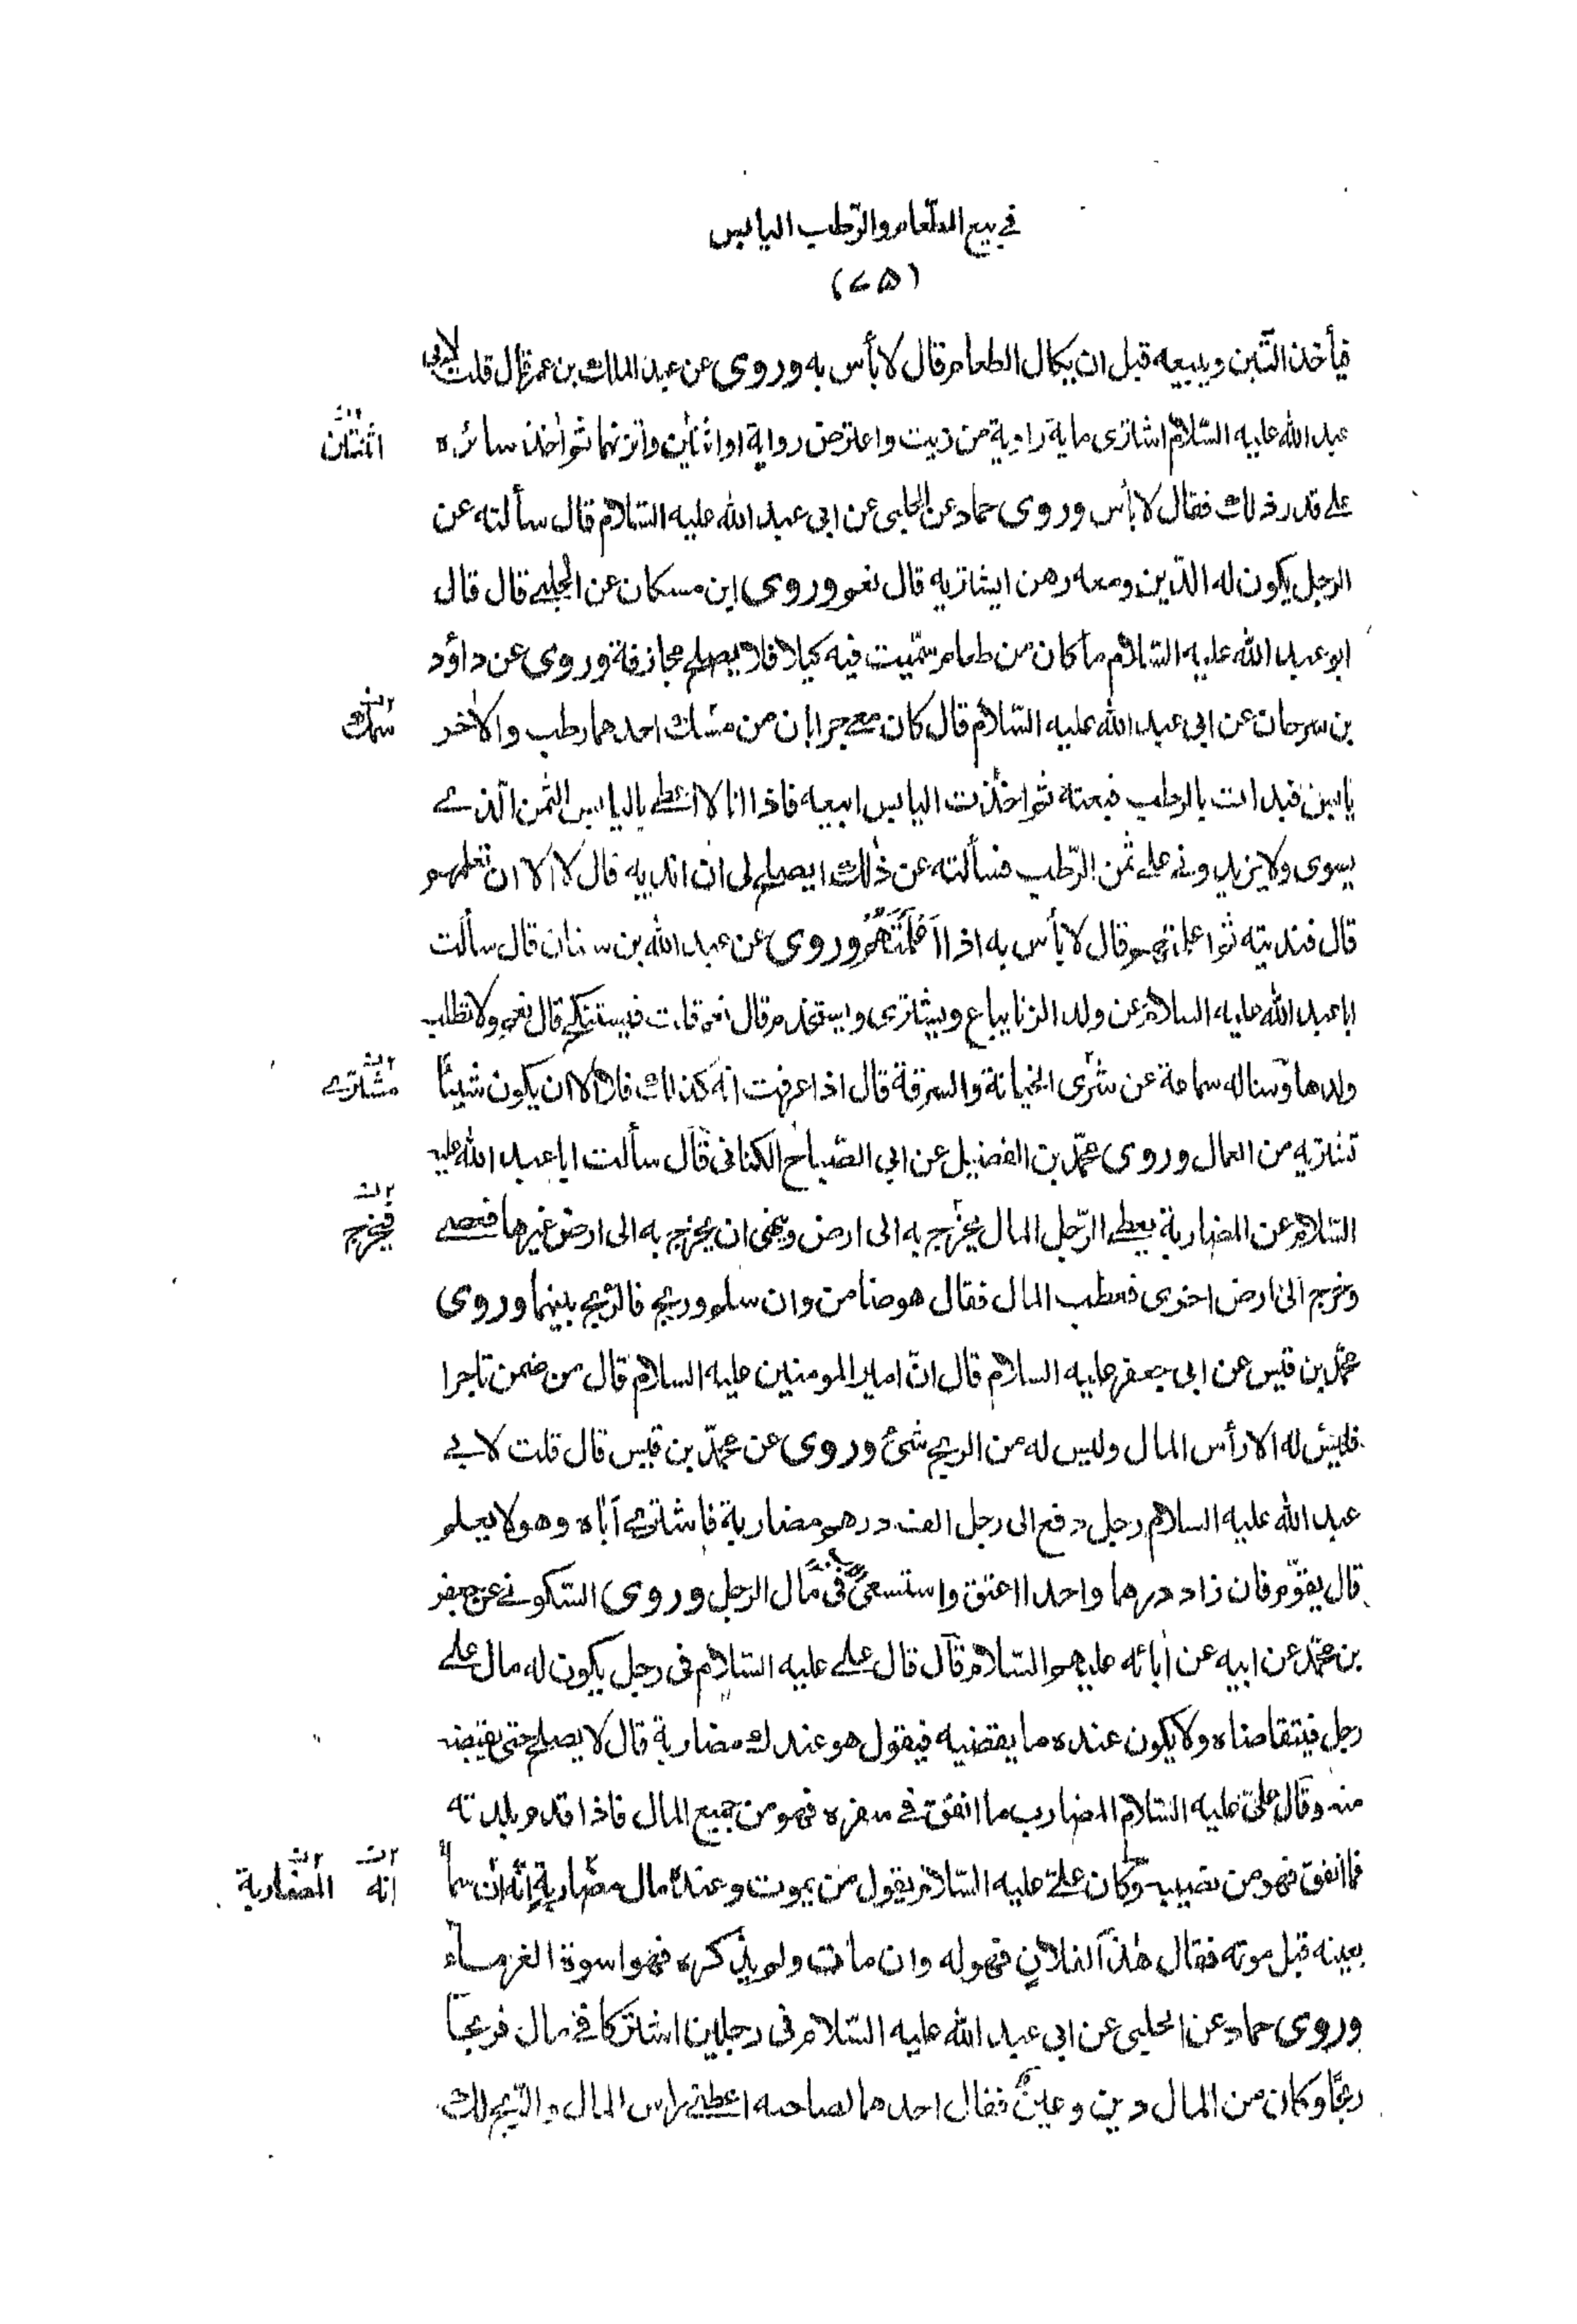 في بيع الطّعام والرّطب اليابس
(٧٥)
فيأخذ التّبن ويبيعه قبل ان يكال الطعام قال لا بأس به وروى عن عبد الملك بن عمر قال قلت لابى
عبد الله عليه السّلام اشترى ماية راوية من زيت واعترض رواية او اثنتين واتزنهما ثم اخذ سائره
اثنتان
على قدر ذلك فقال لا بأس وروى حماد عن الحلبى عن ابى عبد الله عليه السّلام قال سألته عن
الرجل يكون له الدّين ومعه رهن ايشتريه قال نعم وروى ابن مسكان عن الحلبى قال قال
ابو عبد الله عليه السّلام ما كان من طعام سمّيت فيه كيلا فلا يصلح مجازفة وروى عن داؤد
بن سرحان عن ابى عبد الله عليه السّلام قال كان معى جرابان من مسك احدهما رطب والاخر
سمك
يابس فبدات بالرطب فبعته ثم اخذت اليابس ابيعه فاذا انا لا اعطى باليابس الثمن الّذى
يسوى ولا يزيدونى على ثمن الرّطب فسألته عن ذلك ايصلح لى ان انديه قال لا الا ان تعلمهم
قال فنديته ثم اعلمتهم قال لا بأس به اذا اَعْلَمْتَهُمْ وروى عن عبد الله بن سنان قال سألت
ابا عبد الله عليه السلام عن ولد الزنا يباع ويشترى ويستخدم قال نعم قلت فيستنكح قال نعم ولا تطلب
ولدها وساله سماعة عن شرى الخيانة والسرقة قال اذا عرفت انه كذلك فلا الا ان يكون شيئًا
مشترى
تشتريه من العمال وروى محمّد بن الفضيل عن ابى الصّباح الكنانى قال سألت ابا عبد الله عليه
السّلام عن المضاربة يعطى الرّجل المال يخرج به الى ارض وينهى ان يخرج به الى ارض غيرها فعصى
فيخرج
وخرج الى ارض اخرى فعطب المال فقال هو ضامن وان سلم وربح فالرّبح بينهما وروى
محمّد بن قيس عن ابى جعفر عليه السلام قال انّ امير المومنين عليه السلام قال من ضمن تاجرا
فليس له الا رأس المال وليس له من الربح شئ وروى عن محمّد بن قيس قال قلت لابى
عبد الله عليه السلام رجل دفع الى رجل الف درهم مضاربة فاشترى أباه وهو لا يعلم
قال يقوّم فان زاد درهما واحدا اعتق واستسعى فى مال الرجل وروى السّكونى عن جعفر
بن محمّد عن ابيه عن أبائه عليهم السّلام قال قال على عليه السّلام فى رجل يكون له مال على
رجل فيتقاضاه ولا يكون عنده ما يقضيه فيقول هو عندك مضاربة قال لا يصلح حتى يقبضه
منه وقال علىّ عليه السّلام المضارب ما انفق فى سفره فهو من جميع المال فاذا قدم بلدته
فما انفق فهو من نصيبه وكان علىّ عليه السّلام يقول من يموت وعنده مال مضاربة انّه ان سماه
انه المضاربة
بعينه قبل موته فقال هذا لفلان فهو له وان مات ولم يذكره فهو اسوة الغرماء
وروى حماد عن الحلبى عن ابى عبد الله عليه السّلام فى رجلين اشتركا فى مال فربحا
ربحًا وكان من المال دين وعين فقال احدهما لصاحبه اعطنى راس المال والرّبح لك